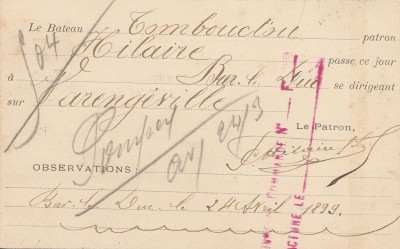 Le Bateau Tombouctou patron
Hilaire passe ce jour
à Bar-le-Duc se dirigeant
sur Varengéville
504
Le Patron,
OBSERVATIONS :
Bar-le-Duc le 24 Avril 1899.
COMMANDE N°
FACTURE LE